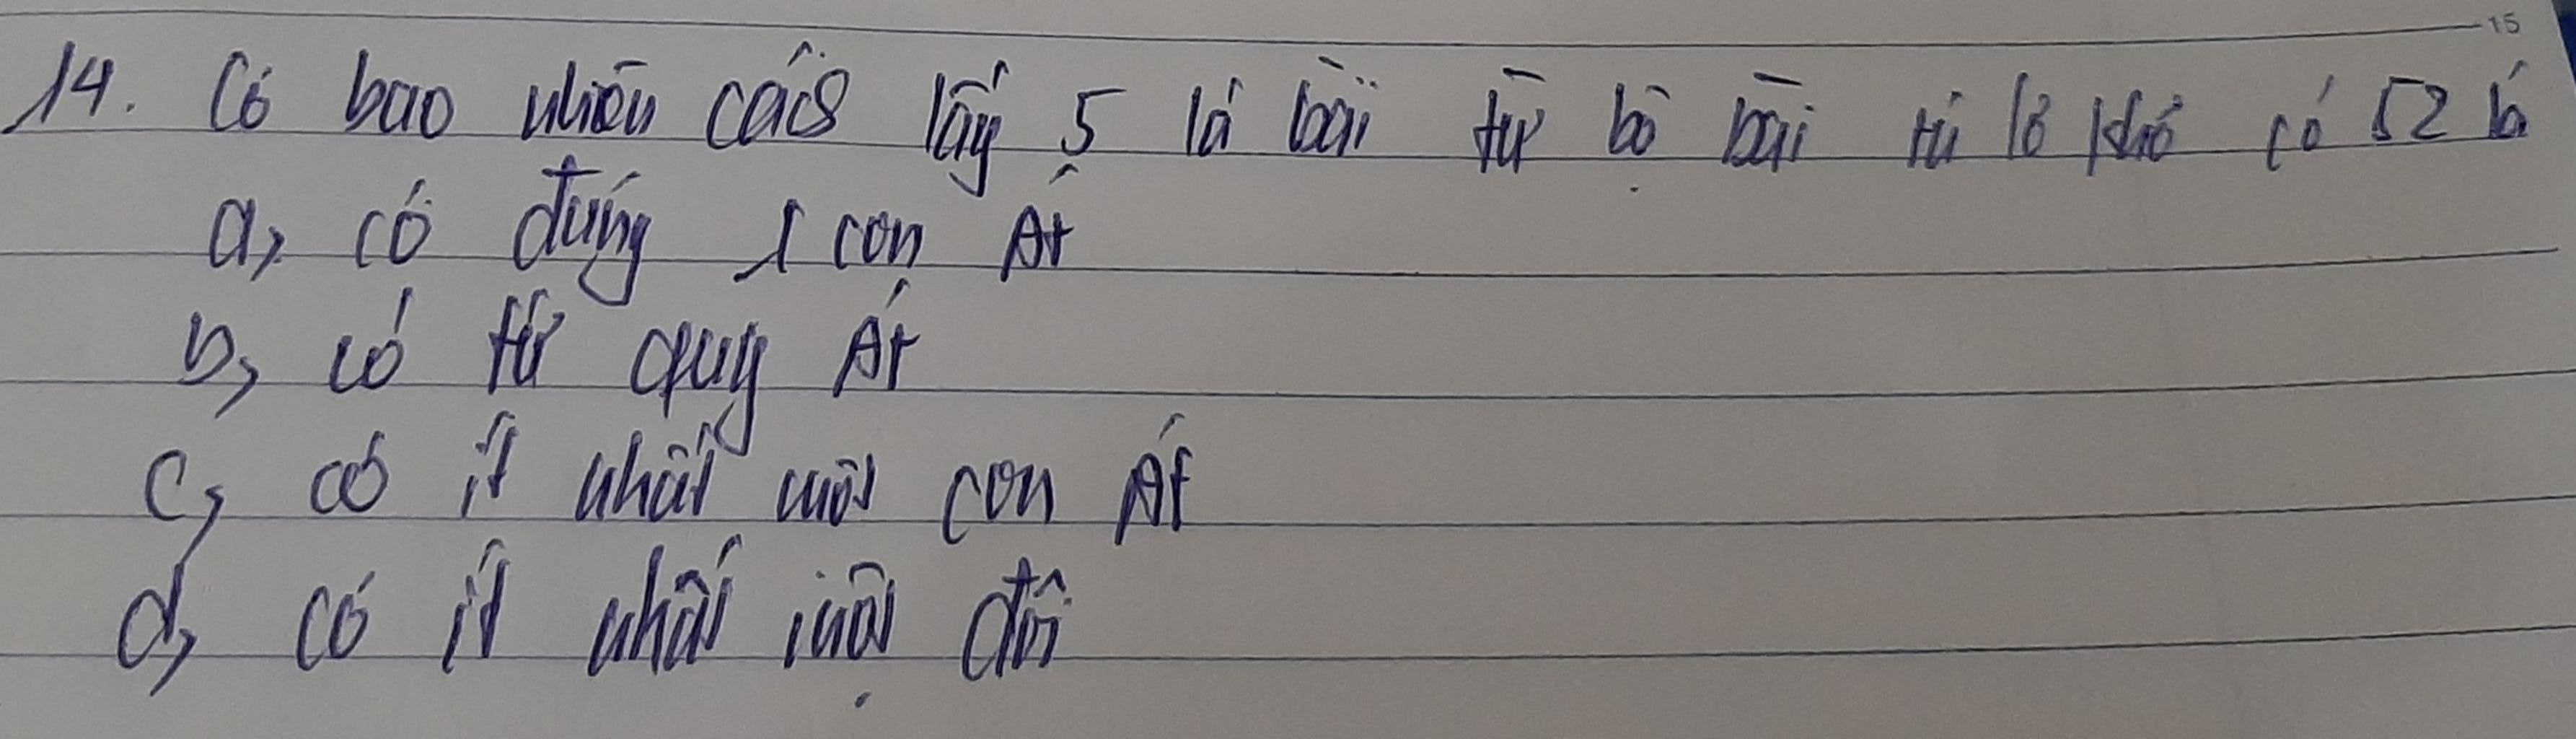 15
14. Có bao nhiêu cách lấy 5 lá bài từ bộ bài tú lơ khơ có 52 lá
a, có đúng 1 con Át
b, có tứ quý Át
c, có ít nhất một con Át
d, có ít nhất một đôi